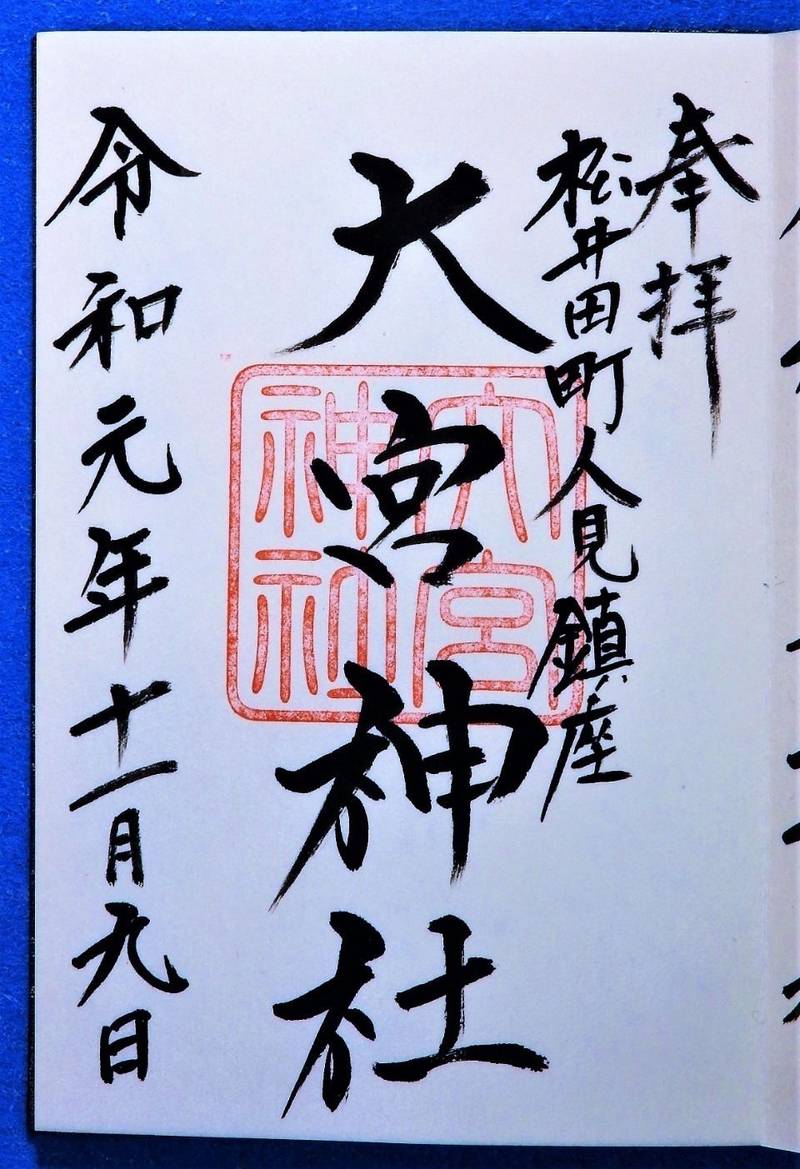 奉拝
松井田町人見鎮座
大宮神社
大宮神社
令和元年十一月九日